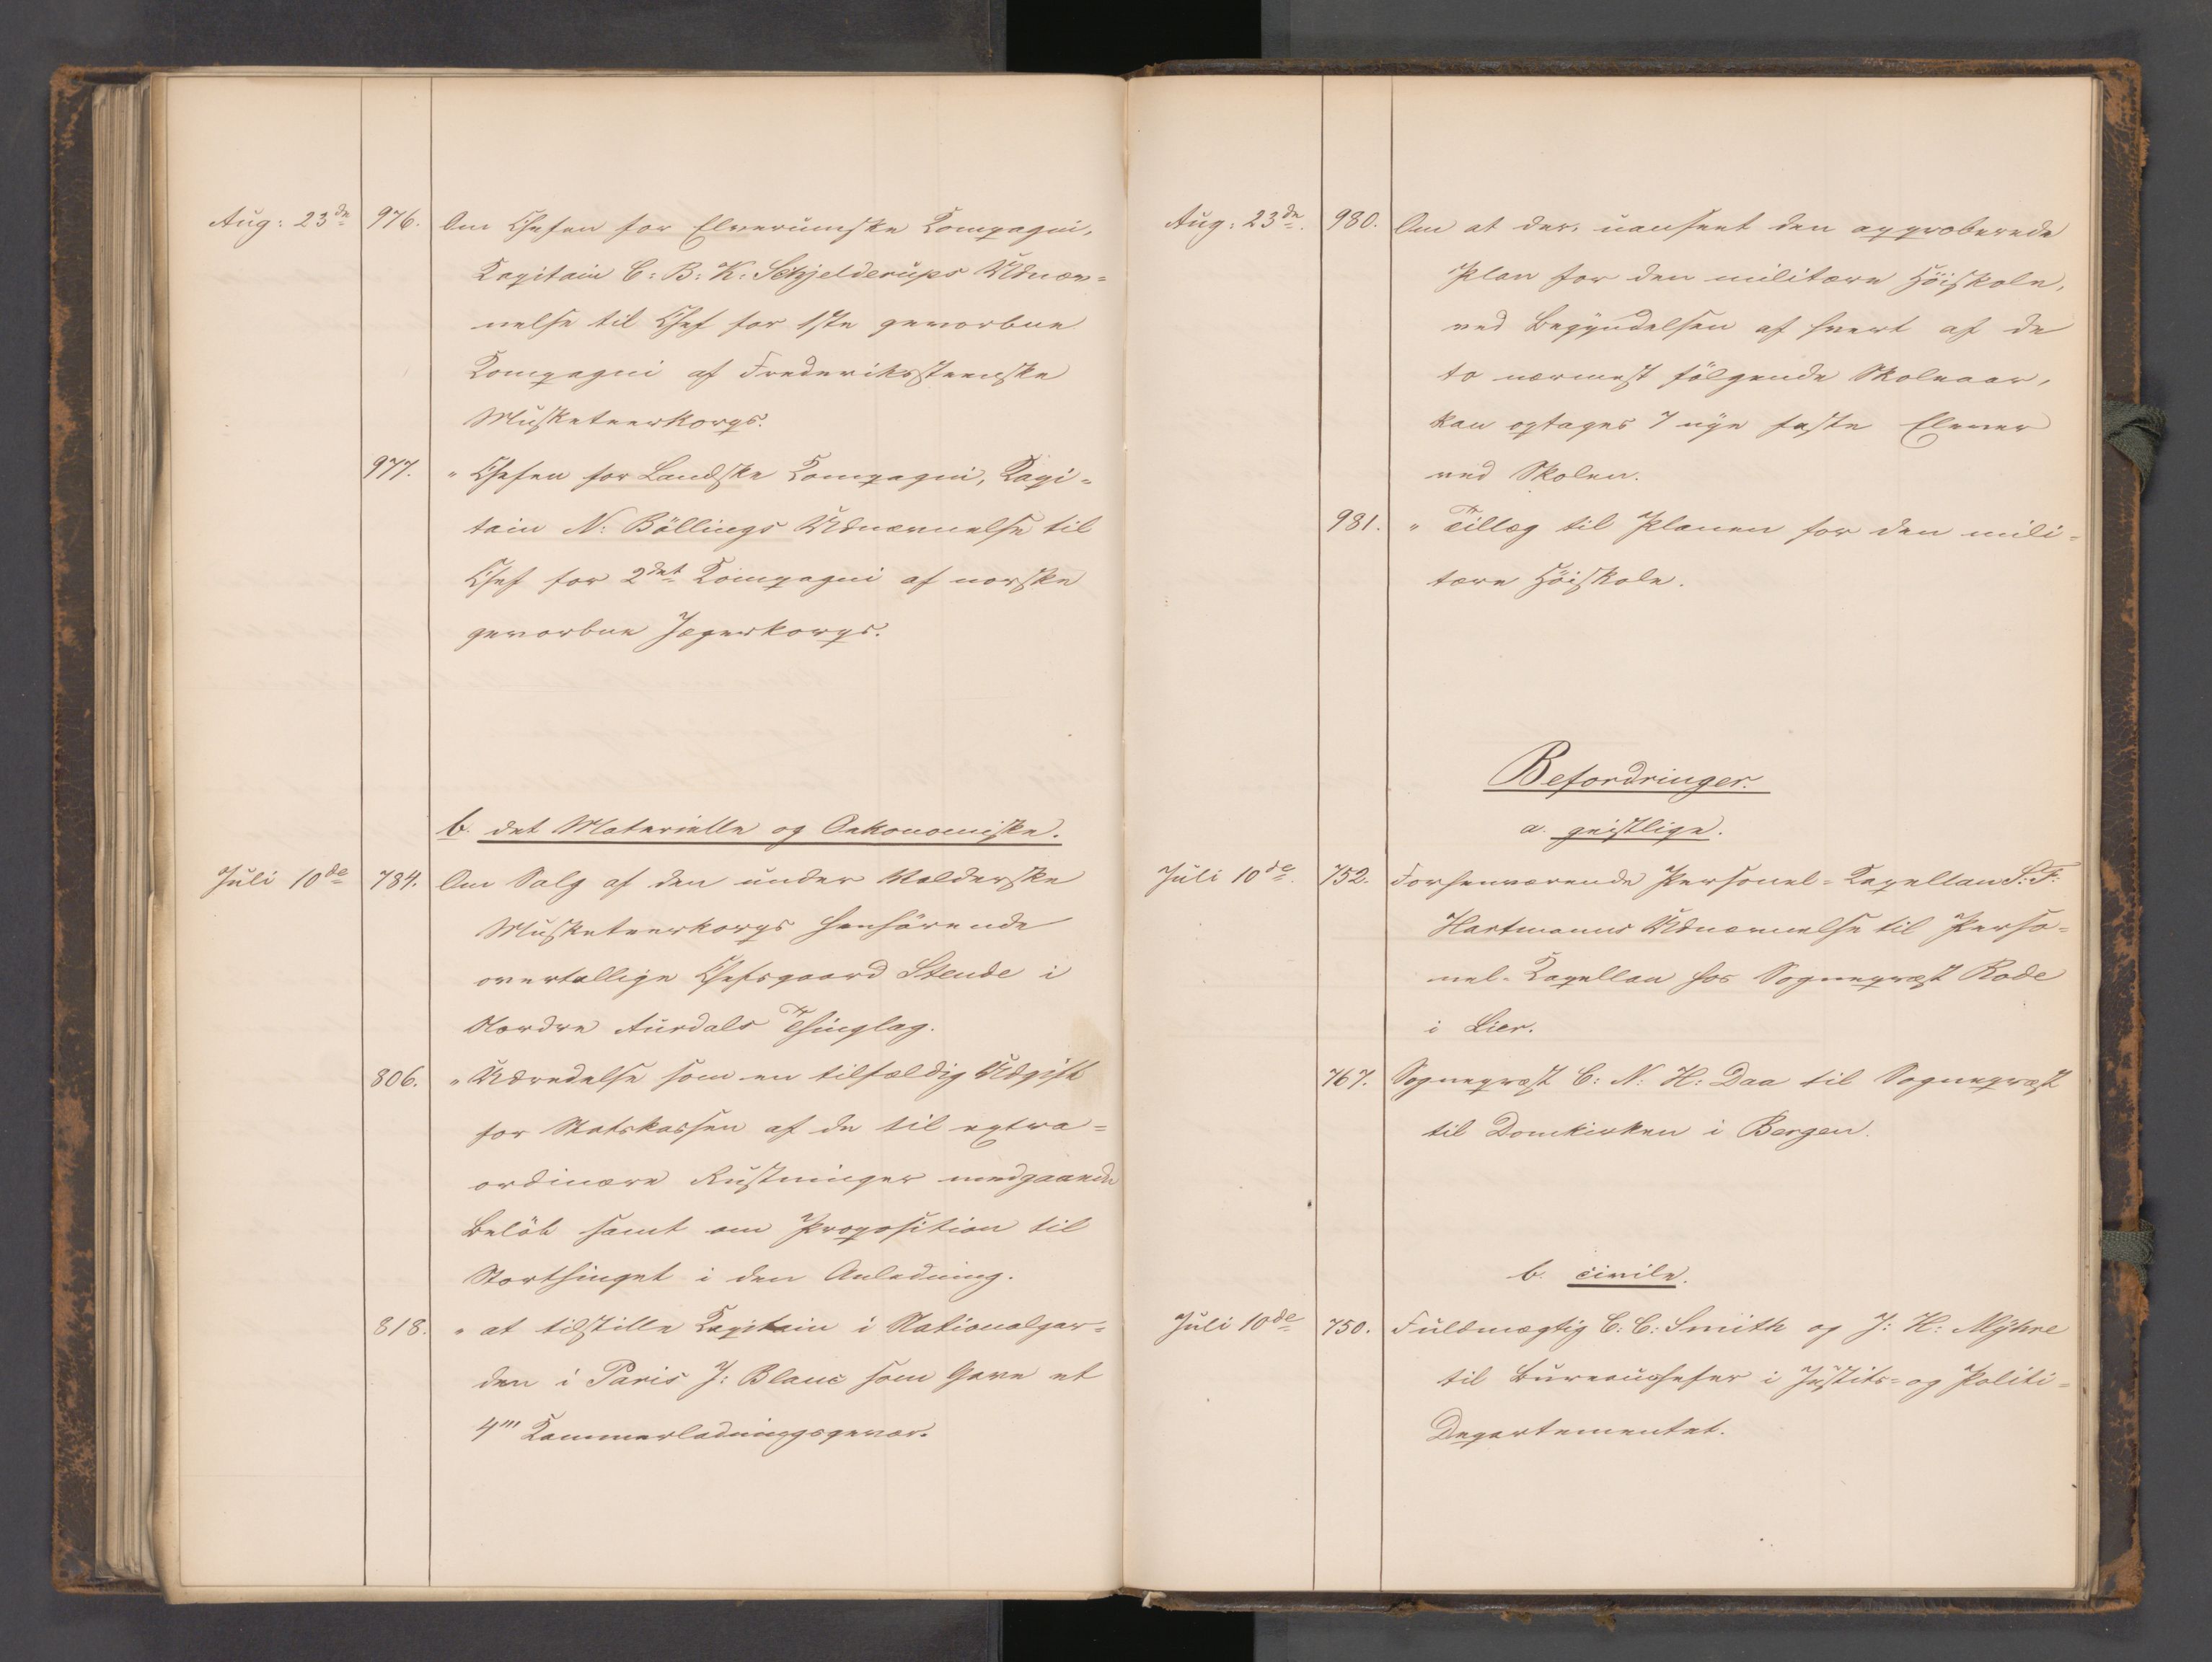 Aug: 23de 976. Om Chefen for Elverumske Kompagni,
Kapitain C: B: K: Schjelderups Udnæv=
nelse til Chef for 1ste gevorbne
Kompagni af Frederiksteenske
Musketeerkorps.
977. " Chefen for Landske Kompagni, Kapi=
tain N: Böllings Udnævnelse til
Chef for 2det Kompagni af norske
gevorbne Jægerkorps.
b. det Materielle og Oekonomiske.
Juli 10de 784. Om Salg af den under Valderske
Musketeerkorps henhörende
overtallige Chefsgaard Stende i
Nordre Aurdals Thinglag.
806. " Udredelse som en tilfældig Udgift
for Statskassen af de til extra=
ordinære Rustninger medgaaende
Belöb samt om Proposition til
Storthinget i den Anledning.
818. " at tilstille Kapitain i Nationalgar=
den i Paris J: Blanc som Gave et
4''' Kammerladningsgevær.
Aug: 23de. 980. Om at der, uanseet den approberede
Plan for den militære Höiskole,
ved Begyndelsen af hvert af de
to nærmest fölgende Skoleaar,
kan optages 7 nye faste Elever
ved Skolen.
981. " Tillæg til Planen for den mili=
tære Höiskole.
Befordringer.
a. geistlige.
Juli 10de. 752. Forhenværende Personel=Kapellan S: F:
Hartmanns Udnævnelse til Perso=
nel=Kapellan hos Sognepræst Rode
i Lier.
767. Sognepræst C: N: H: Daa til Sognepræst
til Domkirken i Bergen.
b. civile.
Juli 10de 750. Fuldmægtig C: C: Smith og J: H: Myhre
til Bureauchefer i Justits= og Politi=
Departementet.